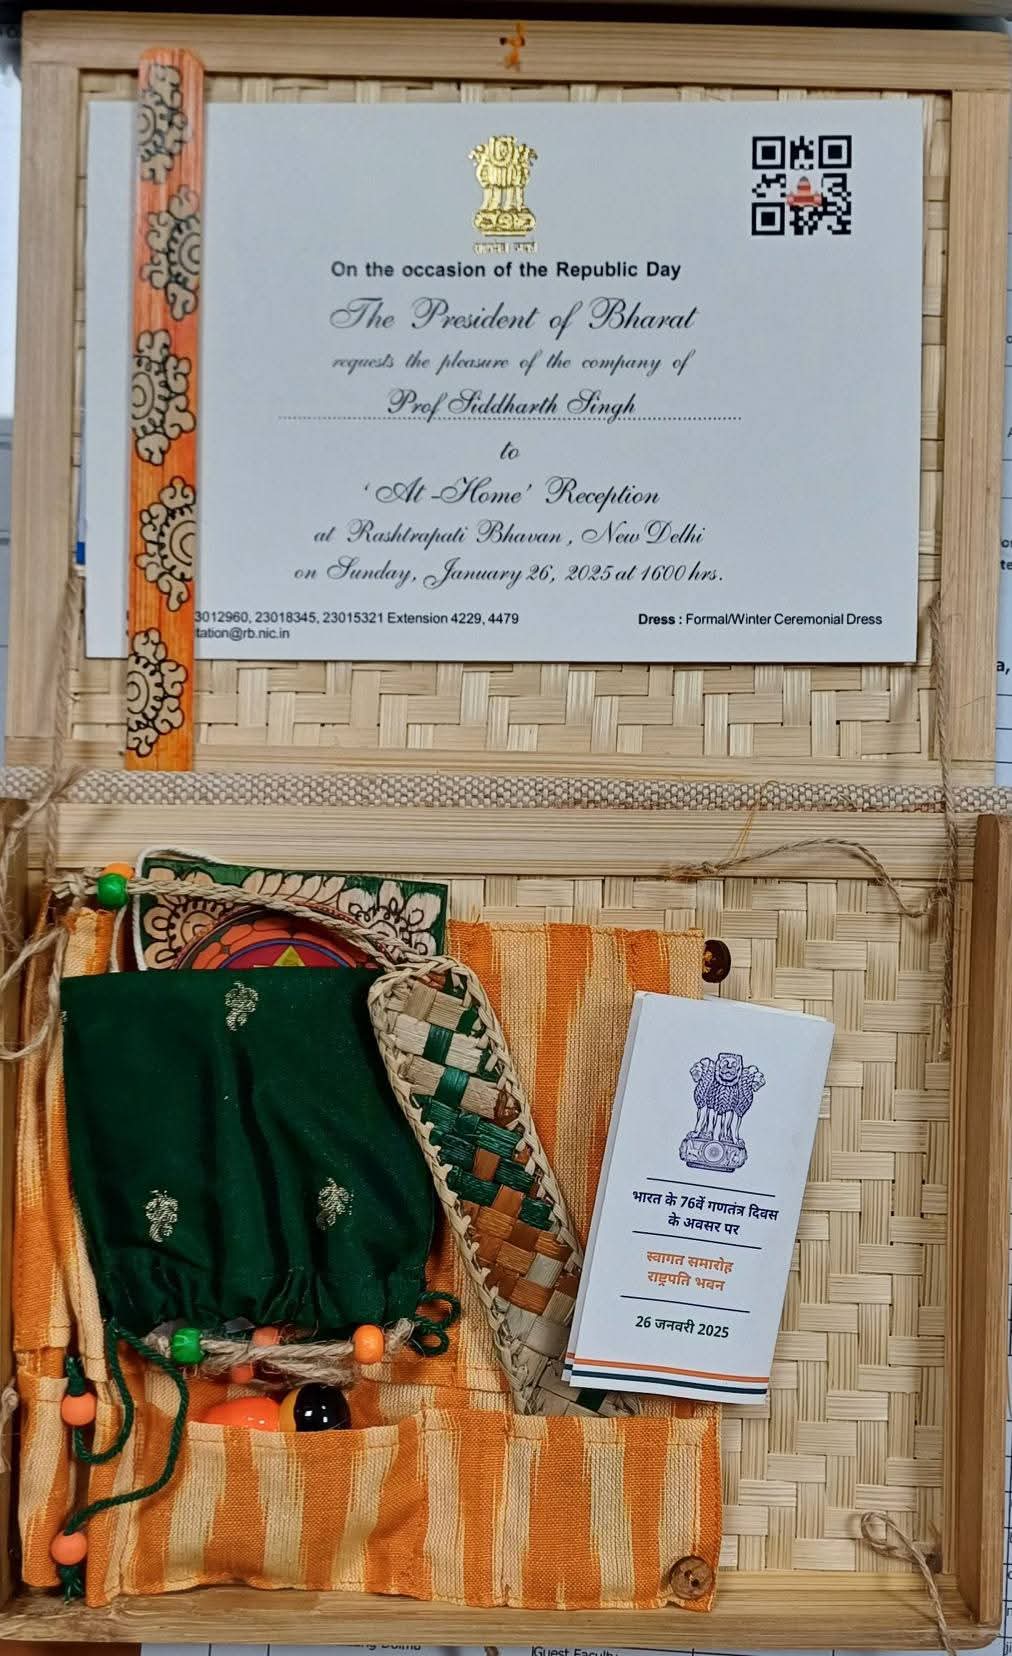 On the occasion of the Republic Day
The President of Bharat
requests the pleasure of the company of
Prof Siddharth Singh
to
‘At-Home’ Reception
at Rashtrapati Bhavan, New Delhi
on Sunday, January 26, 2025 at 1600 hrs.
3012960, 23018345, 23015321 Extension 4229, 4479
tation@rb.nic.in
Dress : Formal/Winter Ceremonial Dress
भारत के 76वें गणतंत्र दिवस
के अवसर पर
स्वागत समारोह
राष्ट्रपति भवन
26 जनवरी 2025
Guest Faculty